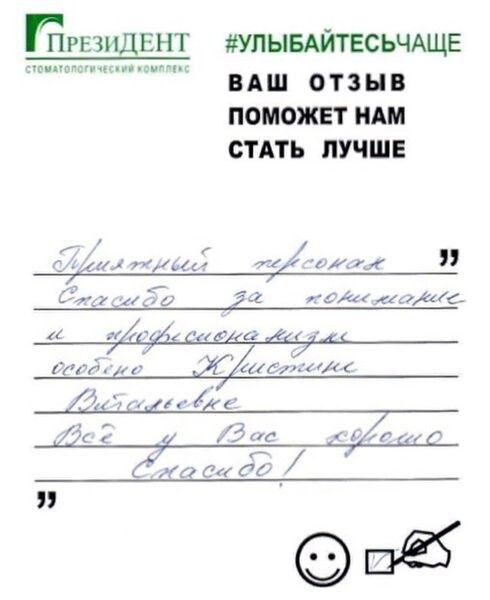 ПРЕЗИДЕНТ
СТОМАТОЛОГИЧЕСКИЙ КОМПЛЕКС
#УЛЫБАЙТЕСЬЧАЩЕ
ВАШ ОТЗЫВ
ПОМОЖЕТ НАМ
СТАТЬ ЛУЧШЕ
Приятный персонал
Спасибо за понимание
и професионализм
особено Кристине
Витальевне
Всё у Вас хорошо
Спасибо!